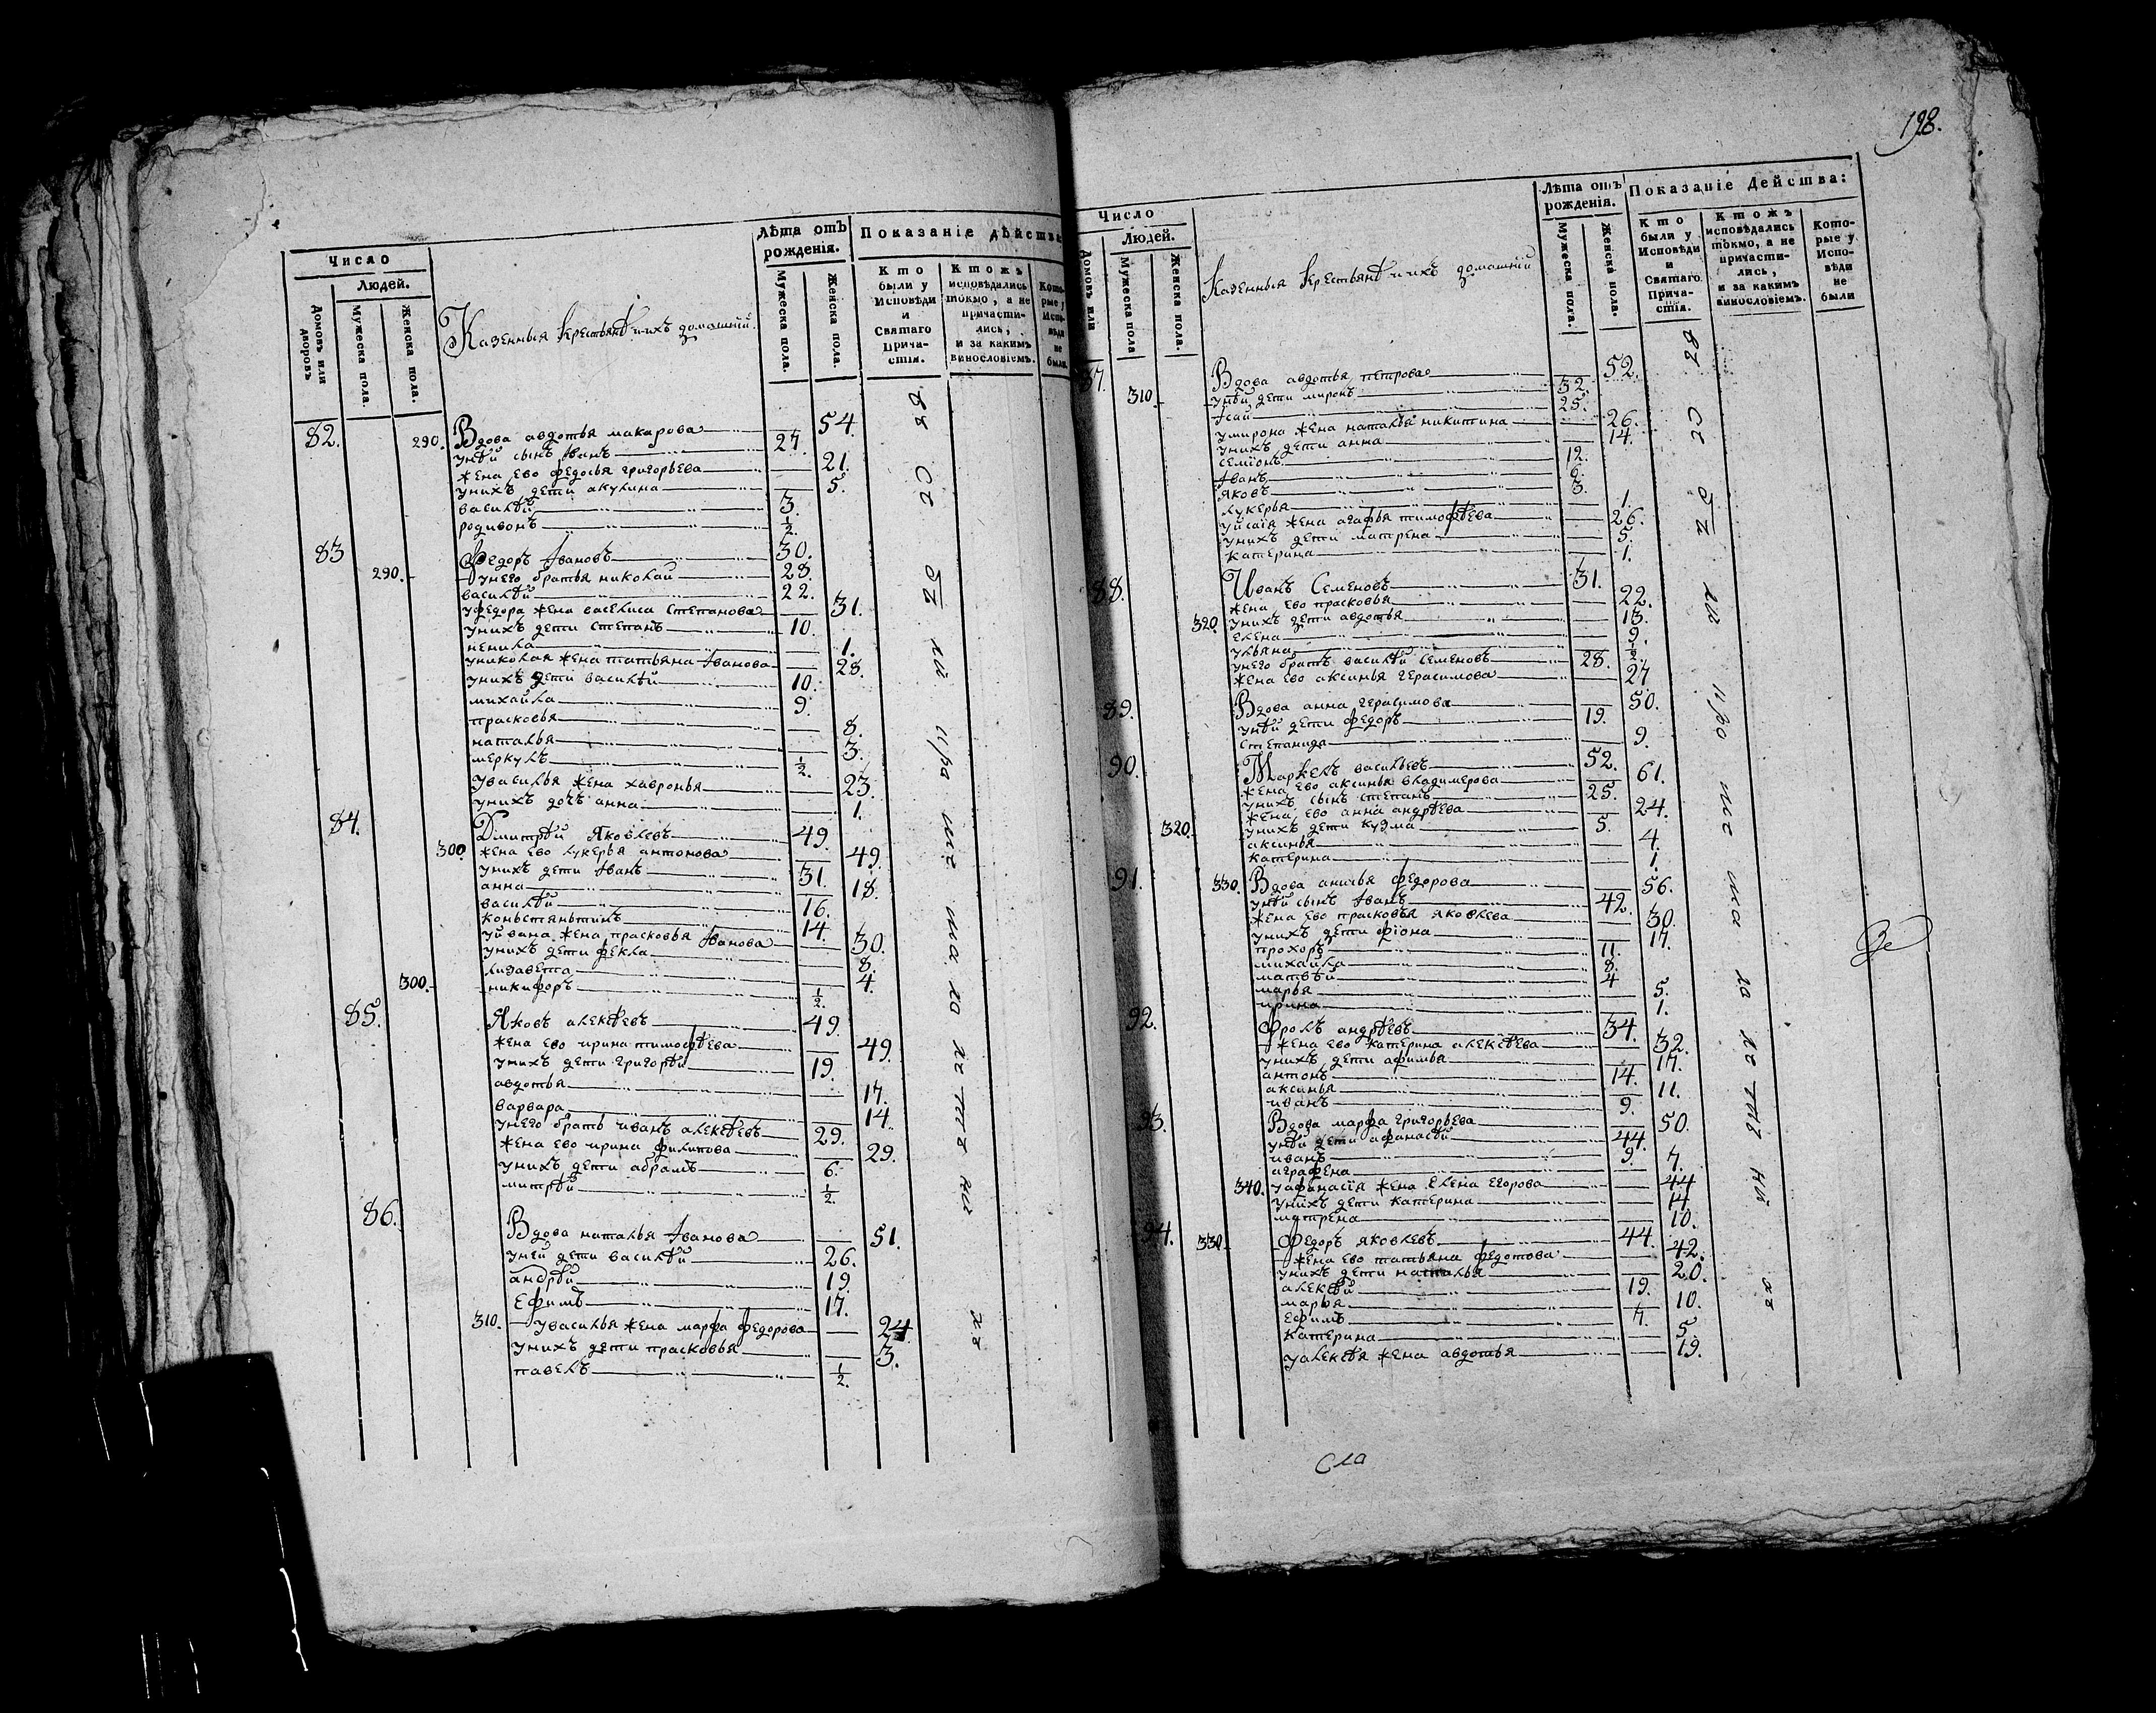 Число
Людей.
Домовъ или дворовъ
Мужеска пола.
Женска пола.
Казенныя крестьянѣ ихъ домашнiй.
Лѣта отъ рожденiя.
Мужеска пола.
Женска пола.
Показанiе дѣйства
Кто были у Исповѣди и Святаго Прича-стiя.
Ктожъ исповѣдались токмо, а не причасти-лись, и за какимъ винословiемъ.
Кото-рые у Испо-вѣди не были.
82. 290. Вдова авдотья макарова 54.
унѣй сынъ Iванъ 27.
жена ево федосья григорьева 21.
унихъ дети акулина 5.
василѣй 3.
родивонъ ½.
83 Федоръ Iвановъ 30.
290. унего братья николай 28.
василѣй 22.
уфедора жена василиса степанова 31.
унихъ дети степанъ 10.
ненила 1.
униколая жена татьяна Iванова 28.
унихъ дети василѣй 10.
михайла 9.
прасковья 8.
наталья 3.
меркулъ ½.
увасилья жена хавронья 23.
унихъ дочь анна 1.
84. Дмитрѣй Яковлевъ 49.
300 жена ево лукерья антонова 49.
унихъ дети Iванъ 31.
анна 18.
василѣй 16.
коньстяньтинъ 14.
уйвана жена прасковья Iванова 30.
унихъ дети фекла 8.
лизавета 4.
300. никифоръ ½.
85. Яковъ алексѣевъ 49.
жена ево ирина тимофѣева 49.
унихъ дети григорѣй 19.
авдотья 17.
варвара 14.
унего братъ иванъ алексѣевъ 29.
жена ево ирина филипова 29.
унихъ дети абрамъ 6.
митрѣй ½.
86. Вдова наталья Iванова 51.
уней дети василѣй 26.
андрѣй 19.
Ефимъ 17.
310. увасилья жена марфа федорова 24
унихъ дети прасковья 3.
павелъ ½.
128.
Число
Людей.
Домовъ или
Мужеска пола
Женска пола.
Казенныя крестьянѣ ихъ домашнiй
Лѣта отъ рожденiя.
Мужеска пола.
Женска пола.
Показанiе Действа:
Кто были у Исповѣди и Святаго Прича-стiя.
Ктожъ исповѣдались токмо, а не причасти-лись, и за какимъ винословiемъ.
Кото-рые у Испо-вѣди не были
87. Вдова авдотья петрова 52.
310. унѣй дети миронъ 32.
Iсай 25.
умирона жена наталья никитина 26.
унихъ дети анна 14.
семiонъ 12.
Iванъ 6.
яковъ 3.
лукерья 1.
уйсаiя жена агафья тимофѣева 26.
унихъ дети матрена 5.
катерина 1.
88. Иванъ Семеновъ 31.
жена ево прасковья 22.
320. унихъ дети авдотья 13.
елена 9.
ульяна ½.
унего братъ василѣй семеновъ 28.
жена ево аксинья герасимова 27
89. Вдова анна герасимова 50.
унѣй дети федоръ 19.
степанида 9.
90. Маркелъ васильевъ 52.
жена ево аксинья владимерова 61.
унихъ сынъ степанъ 25.
жена ево анна андрѣева 24.
320. унихъ дети кузма 5.
аксинья 4.
катерина 1.
91. 330. Вдова анисья федорова 56.
унѣй сынъ Iванъ 42.
жена ево прасковья яковлева 30.
унихъ дети фiона 17.
прохоръ 11.
михайла 8.
матвѣй 4
марья 5.
ирина 1.
92. Фролъ андрѣевъ 34.
жена ево катерина алексѣева 32.
унихъ дети афимья 17.
антонъ 14.
аксинья 11.
иванъ 9.
93. Вдова марфа григорьева 50.
унѣй дети афанасѣй 44.
иванъ 9.
аграфена 7.
340. уафанасiя жена елена егорова 44
унихъ дети катерина
матрена 10.
94. 330. Федоръ яковлевъ 44.
жена ево татьяна федотова 42.
унихъ дети наталья 20.
алексѣй 19.
марья 10.
Ефимъ 7.
катерина 5.
уалексѣя жена авдотья 19.
сла